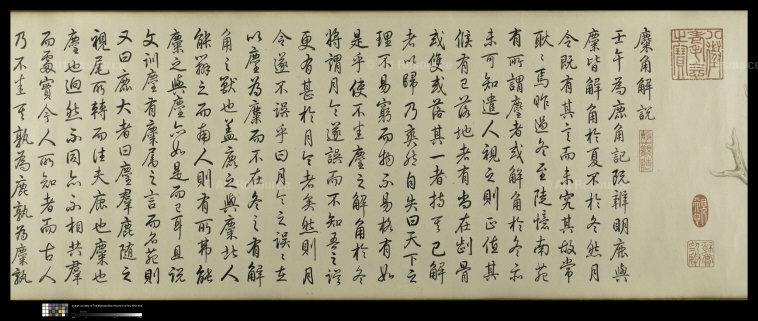 八徵耄念之寶
麋角解說
壬午為鹿角記既辨明鹿與
麋皆解角於夏不於冬然月
令既有其言而未究其故常
耿耿焉昨過冬至陡憶南苑
有所謂麈者或解角於冬亦
未可知遣人視之則正值其
候有已落地者有尚在骨
或雙或落其一者持其已解
者以歸乃爽然自失曰天下之
理不易窮而物不易格有如
是乎使不悉麈之解角於冬
將謂月令遂誤而不知吾之誤
更有甚於月令者矣然則月
令遂不誤乎曰月令之誤誤在
以麈為麋而不在冬之有解
角之獸也蓋鹿之與麋北人
能辨之而南人則有所弗能
麋之與麈亦如是而已耳且說
文訓麈有麋屬之言而名苑則
又曰鹿大者曰麈羣鹿隨之
視尾所轉而往夫鹿也麋也
麈也迥然不同亦不相共羣
而處實今人所知者而古人
乃不悉其孰為鹿孰為麋孰